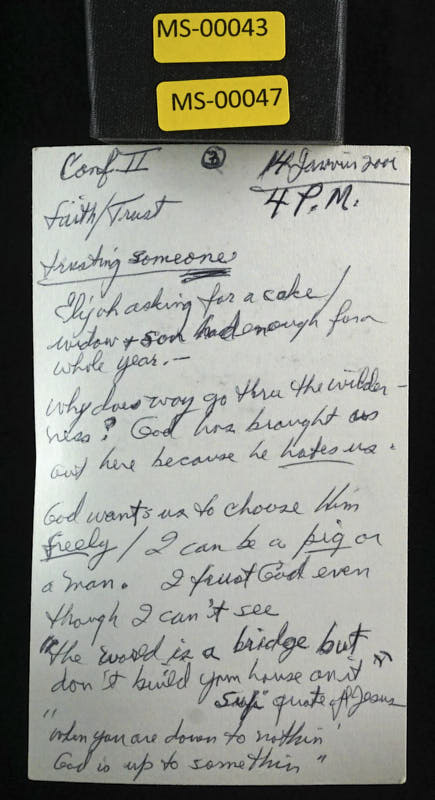 MS-00043
MS-00047
Conf. II ③ Jarvis 2001
4 P.M.
Faith/Trust
trusting someone
Elijah asking for a cake/
widow + son had enough for a
whole year. —
Why does way go thru the wilder-
ness? God has brought us
out here because he hates us.
God wants us to choose Him
freely / I can be a pig or
a man. I trust God even
though I can't see
"the world is a bridge but
don't build your house on it"
Sufi quote of Jesus
"when you are down to nothin'
God is up to somethin"